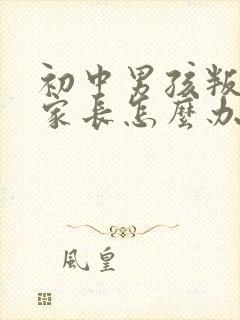 初中男孩叛
家長怎麼办
風皇